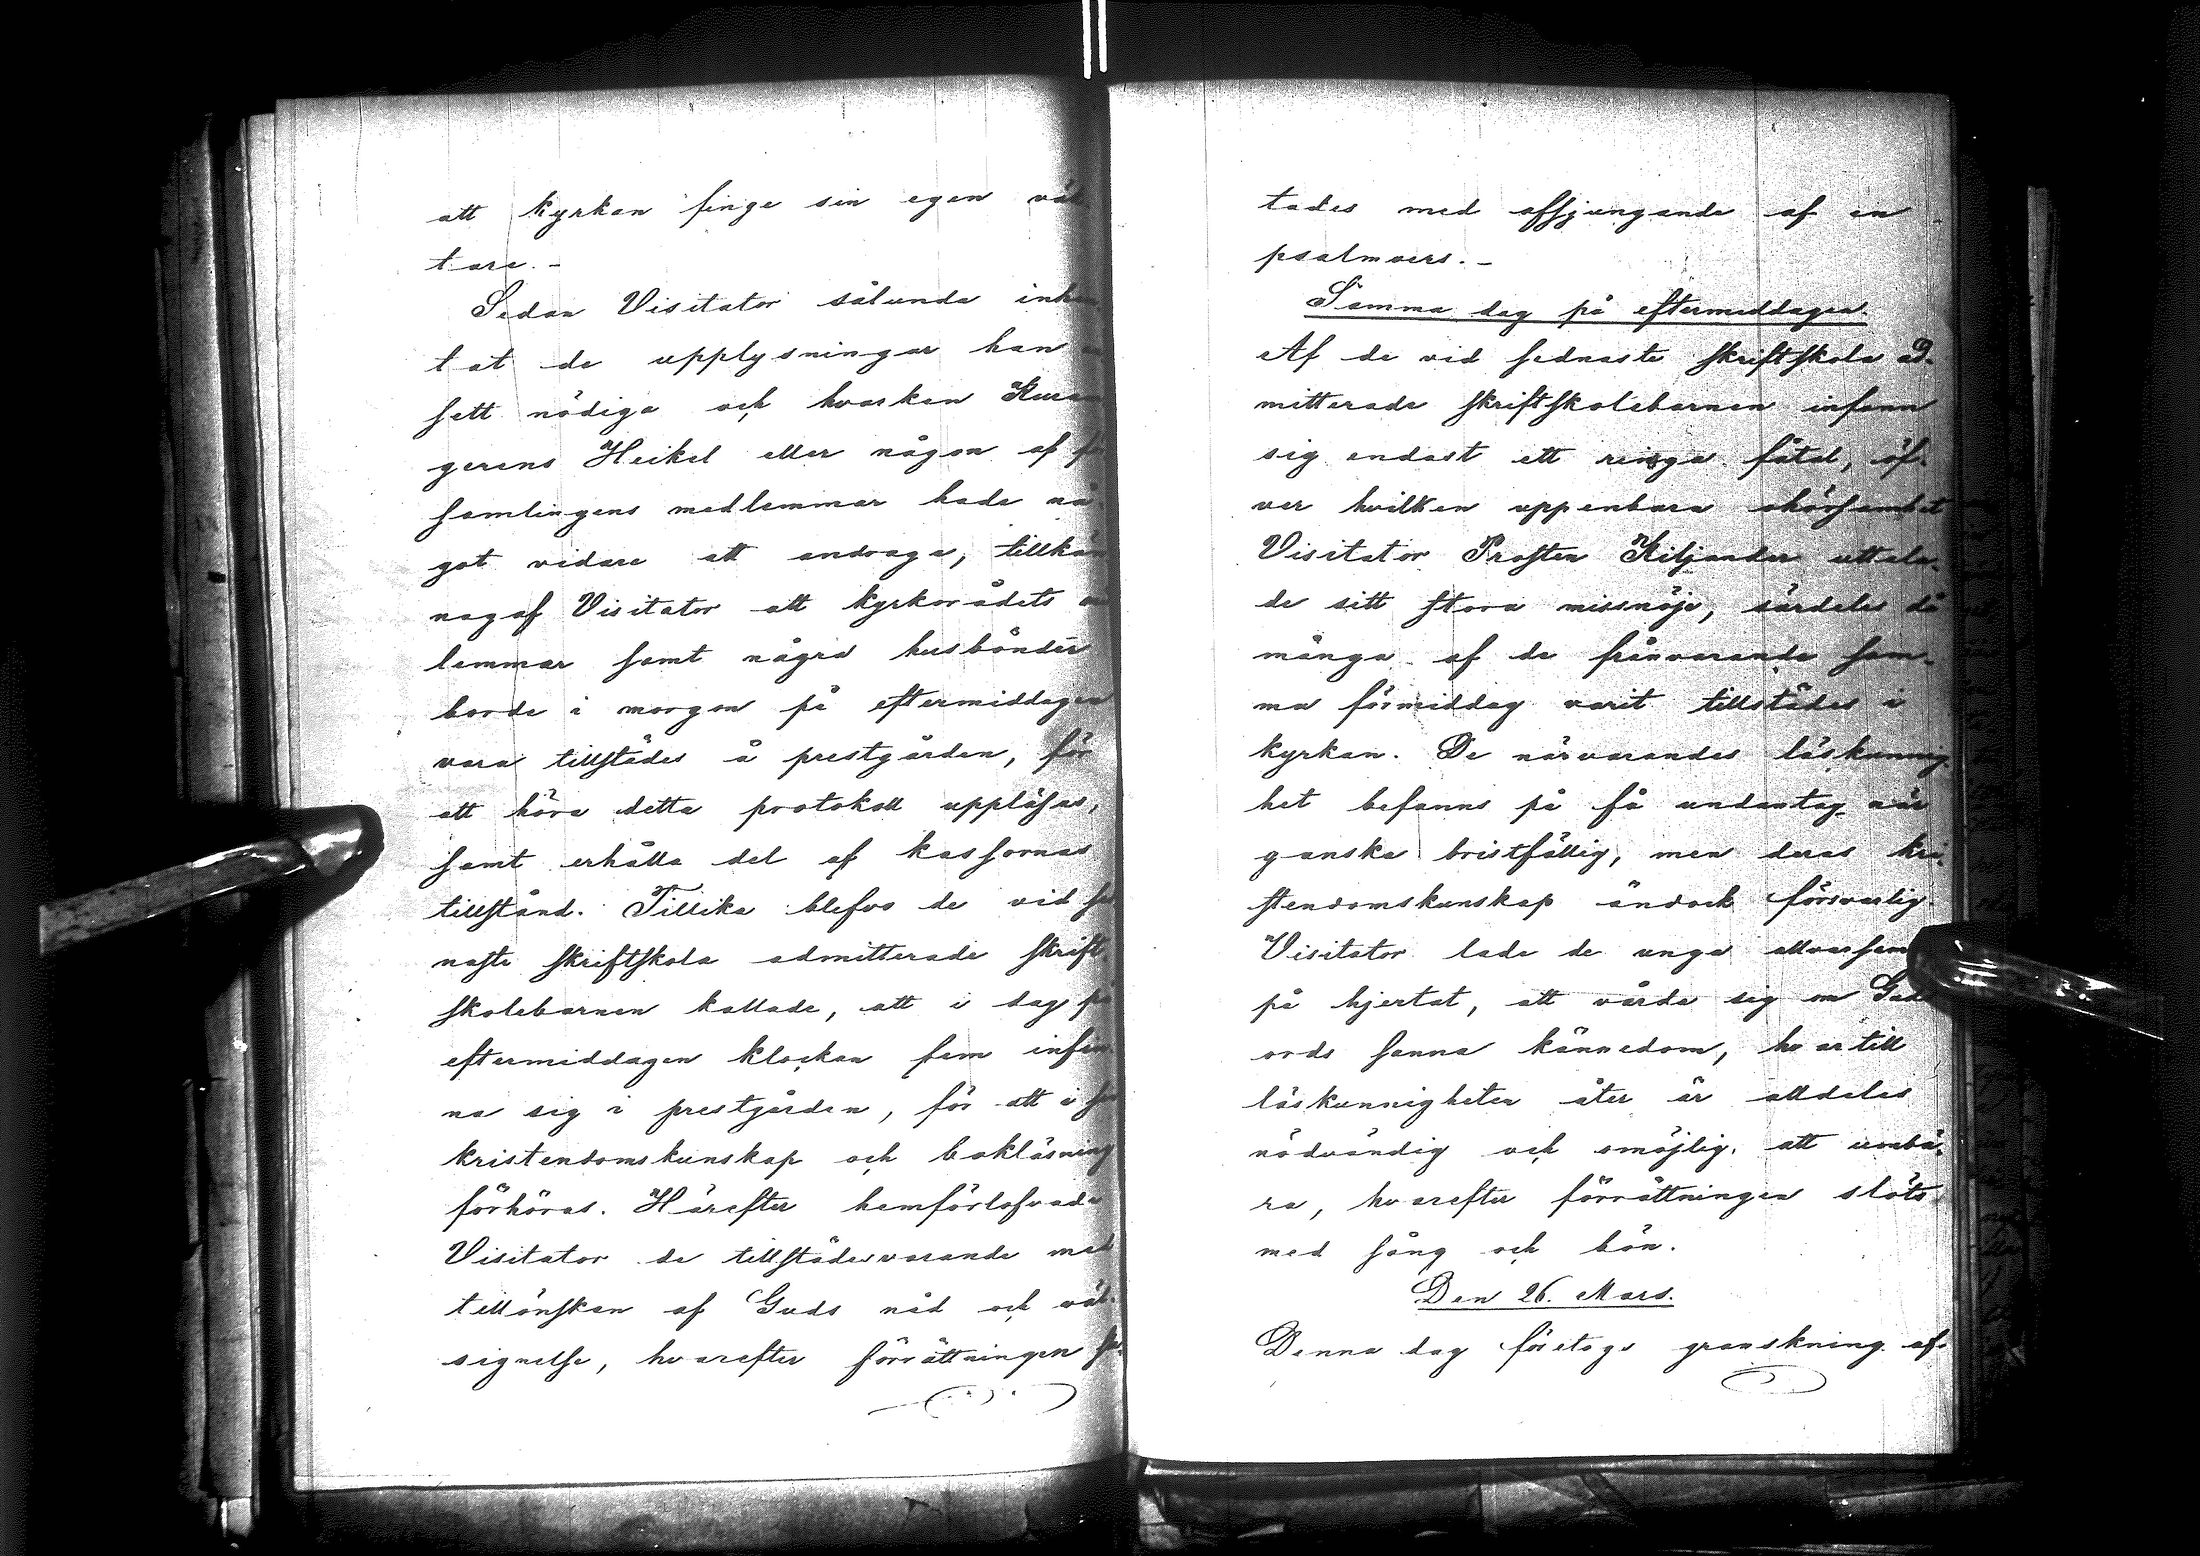 att kyrkan finge sin egen väk
tare. -
Sedan Visitator sålunda inhem
tat de upplysningar han
sett nödiga och hvarken
gerens Heikel eller någon af
samlingens medlemmar hade nå-
got vidare att andraga, tillkän
nagaf Visitator att kyrkorådets
lemmar samt några husbönder
borde i morgon på eftermiddagen
vara tillstädes å prestgården, för
att höra detta protokoll uppläsas,
samt erhålla del af kassornas
tillstånd. Tillika blefvo de vid
naste skriftskola admitterade skrift
skolebarnen kallade, att i dag på
eftermiddagen klockan fem infin-
na sig i prestgården, för att i
kristendomskunskap och bokläsning
förhöras. Härefter hemförlofvade
Visitator de tillstädesvarande med
tillönskan af Guds nåd och väl-
signelse, hvarefter förrättningen
tades med afsjungande af en
psalmvers. -
Samma dag på eftermiddagen.
Af de vid sednaste skriftskola ad-
mitterade skriftskolebarnen infann
sig endast ett ringa fåtal, öf-
ver hvilken uppenbara ohörsamhet
Visitator Prosten Kiljander uttala-
de sitt stora missnöje, särdeles då
många af de frånvarande sam-
ma förmiddag varit tillstädes i
kyrkan. De närvarandes läskunnig
het befanns på få undantag när
ganska bristfällig, men deras kri-
stendomskunskap ändock försvarlig.
Visitator lade de unga allvarsamt
på hjertat, att vårda sig om Guds
ords sanna kännedom, hvartill
läskunnigheten åter är alldeles
nödvändig och omöjlig att umbä-
ra, hvarefter förrättningen slöts
med sång och bön.
Den 26. Mars.
Denna dag företogs granskning af